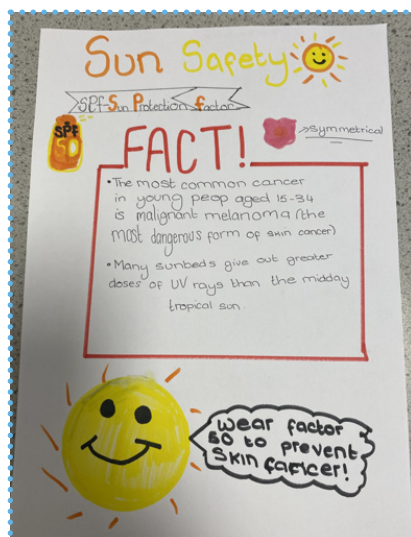 Sun Safety
SPF-Sun Protection Factor
SPF
50
FACT!
symmetrical
•The most common cancer
in young peop aged 15-34
is malignant melanoma (the
most dangerous form of skin cancer)
•Many sunbeds give out greater
doses of UV rays than the midday
tropical sun
wear factor
50 to prevent
Skin cancer!